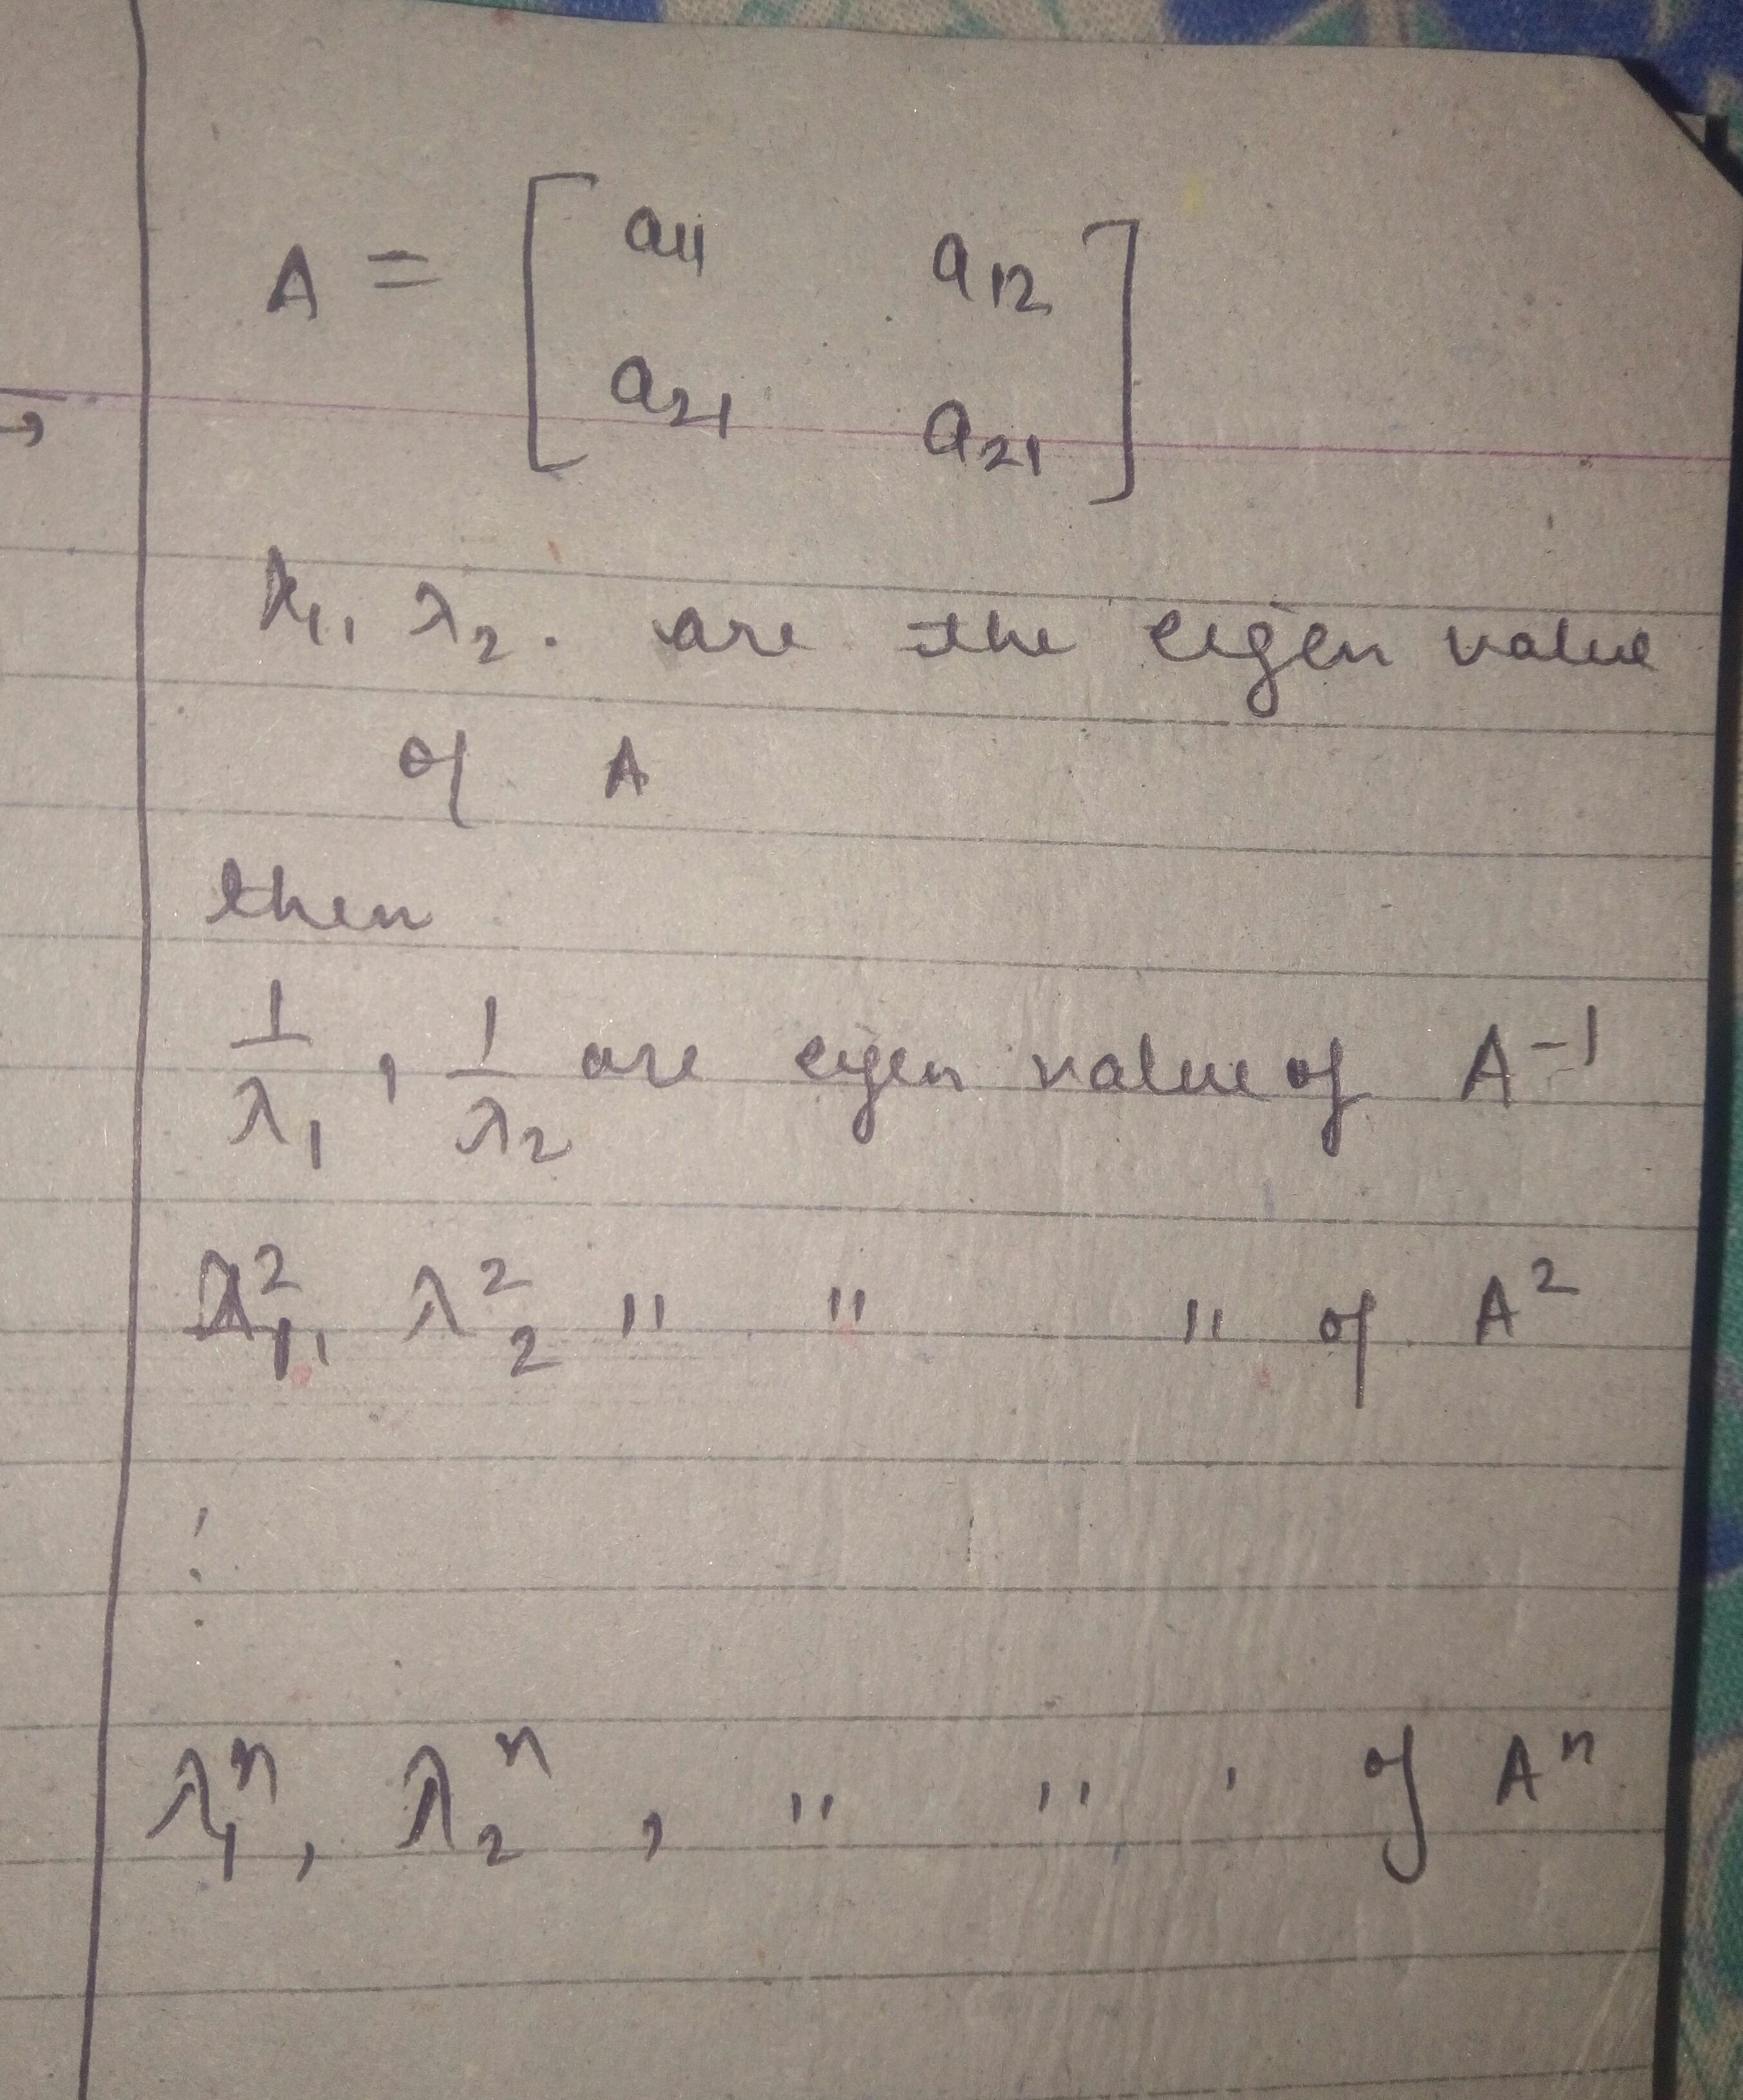 A = [ a11 a12
a21 a21 ]
λ1, λ2. are the eigen value
of A
then
1/λ1 , 1/λ2 are eigen value of A^-1
λ1^2, λ2^2 " " " of A^2
⋮
λ1^n, λ2^n , " " ' of A^n